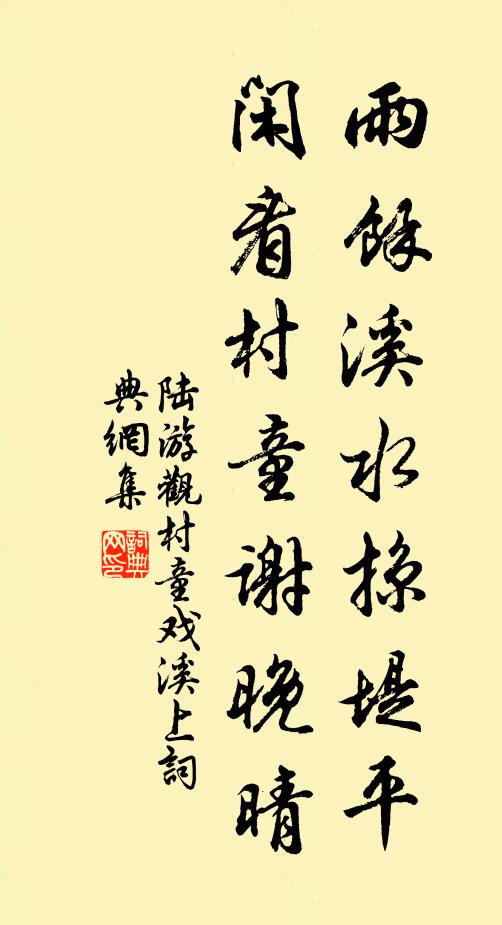 雨餘溪水掠堤平
閑看村童謝晚晴
陆游觀村童戏溪上詞
典網集
詞典网印